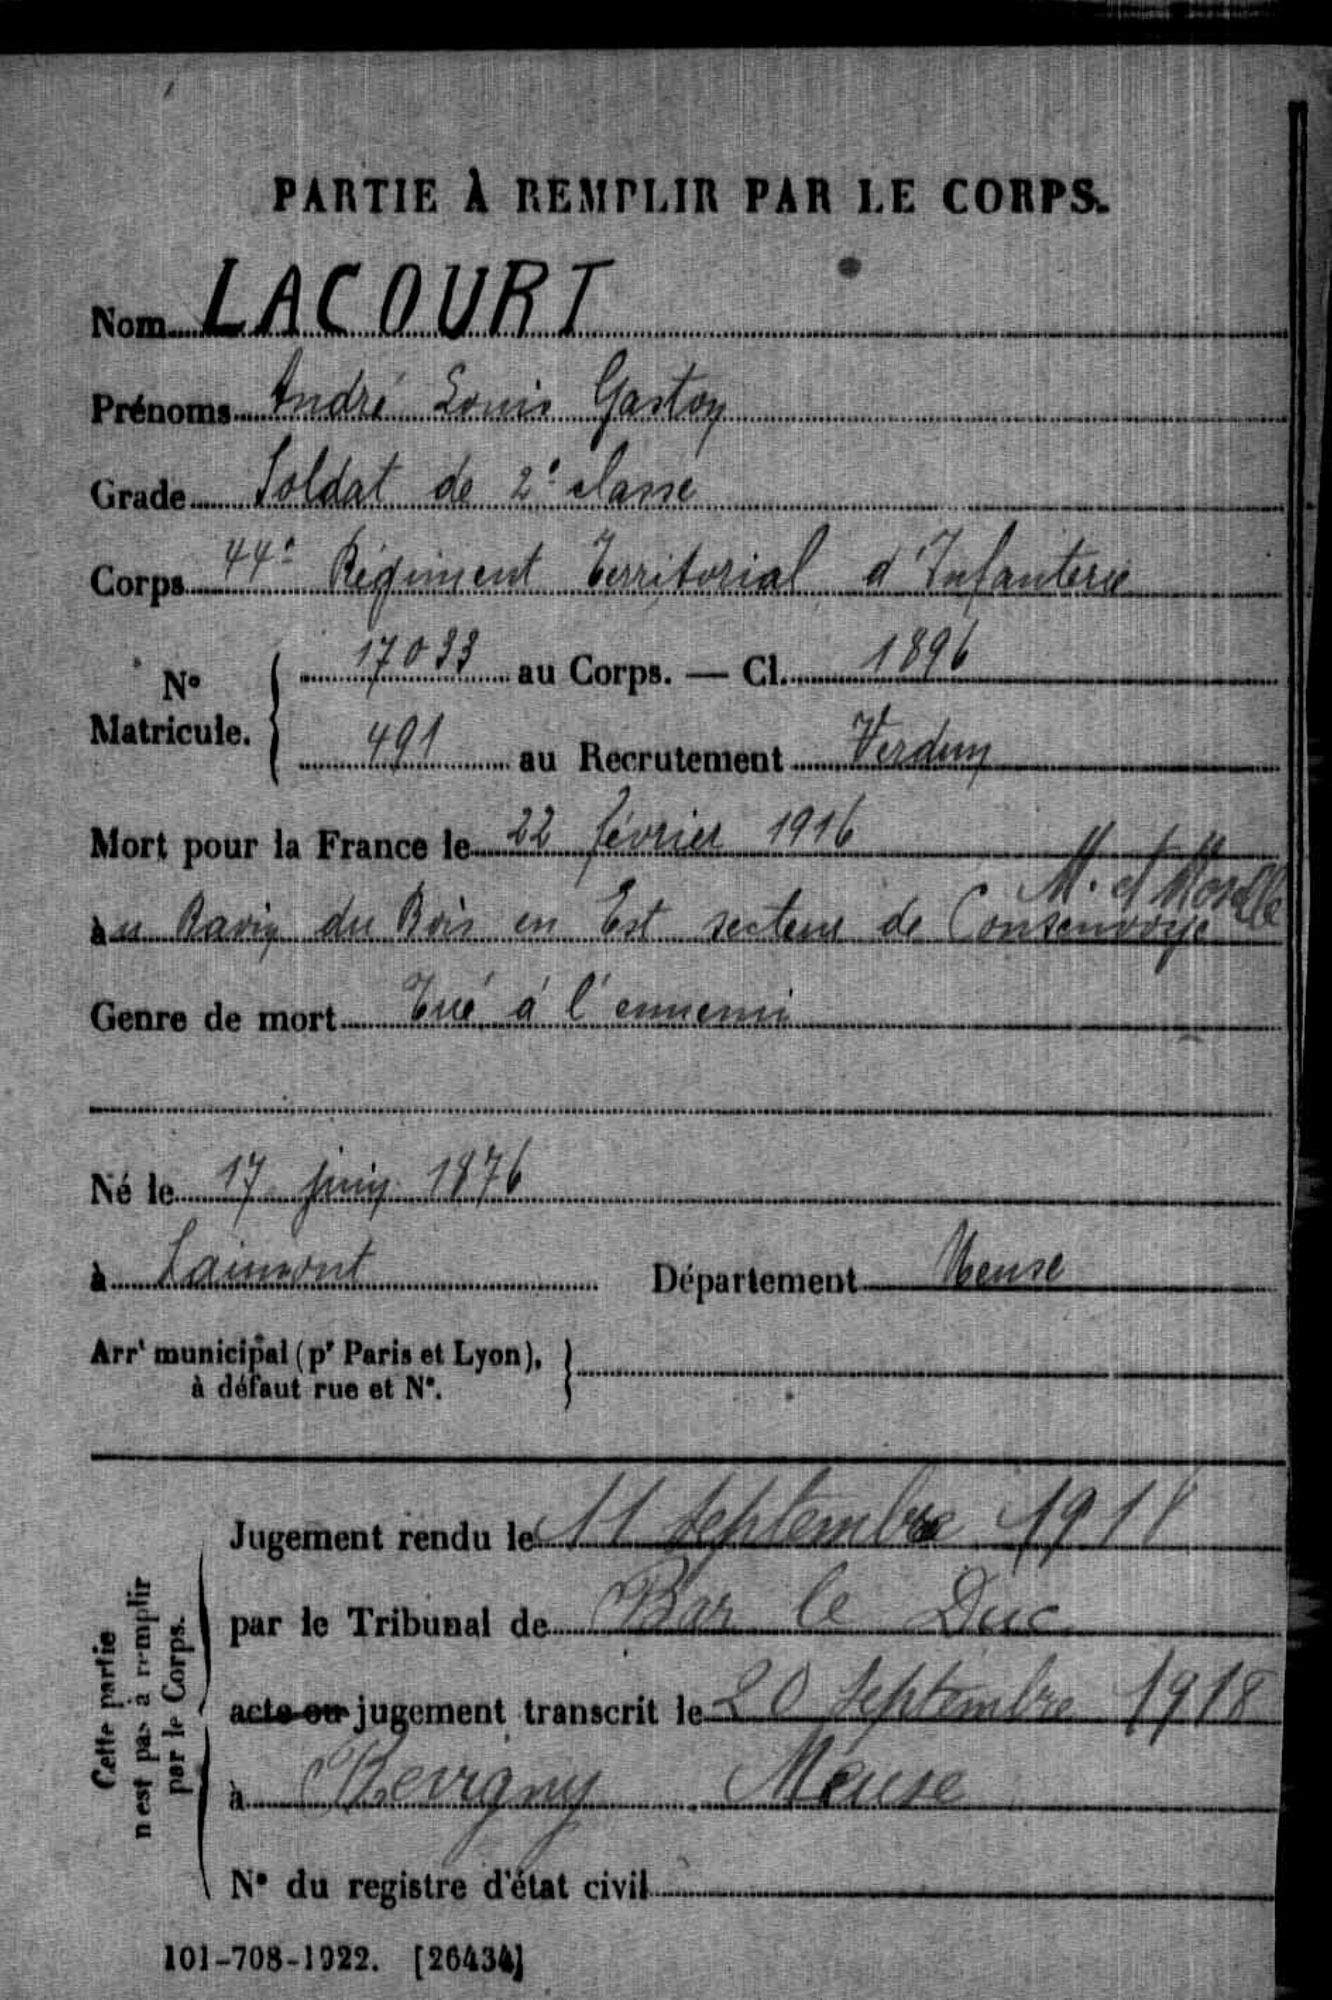 PARTIE À REMPLIR PAR LE CORPS.
Nom LACOURT
Prénoms André Louis Gaston
Grade Soldat de 2e classe
Corps 44e Régiment Territorial d'Infanterie
N° Matricule. { 17033 au Corps. — Cl. 1896
491 au Recrutement Verdun
Mort pour la France le 22 février 1916
M. et Moselle
au Ravin du Bois en Est secteur de Consenvoye
Genre de mort Tué à l'ennemi
Né le 17 juin 1876
à Laimont Département Meuse
Arrt municipal (pr Paris et Lyon),
à défaut rue et N°.
Cette partie
n'est pas à remplir
par le Corps.
Jugement rendu le 11 Septembre 1918
par le Tribunal de Bar le Duc
acte ou jugement transcrit le 20 Septembre 1918
à Revigny Meuse
N° du registre d'état civil
101-708-1922. [26434]